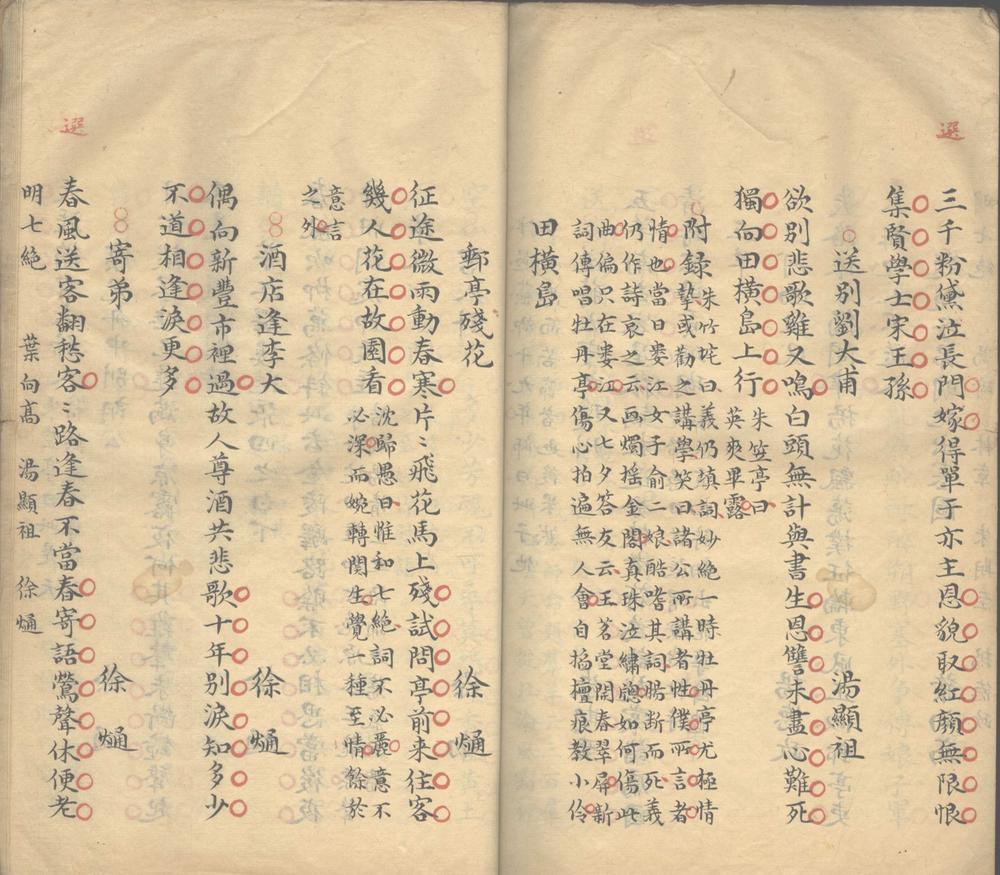 選
三千粉黛泣長門嫁得單于亦主恩貌取紅顏無限恨
集賢學士宋王孫
送別劉大甫 湯顯祖
欲別悲歌雞又鳴白頭無計與書生恩讐未盡心難死
獨向田橫島上行 朱笠亭曰
英爽畢露
附録 朱竹垞曰義仍填詞妙絕一時牡丹亭尤極情
摯或勸之講學笑曰諸公所講者性僕所言者
情也當日婁江女子俞二娘酷嗜其詞斷腸而死義
仍作詩哀之云画燭搖金閣真珠泣繡牕如何傷此
曲偏只在婁江又七夕答友云玉茗堂開春翠屏新
詞傳唱牡丹亭傷心拍遍無人會自掐檀痕教小伶
田橫島
選
郵亭殘花 徐熥
征途微雨動春寒片〻飛花馬上殘試問亭前来往客
幾人花在故園看 沈歸愚曰惟和七絕詞不必麗意不
必深而婉轉関生覺 種至情餘於
意言
之外
酒店逢李大 徐熥
偶向新豐市裡過故人尊酒共悲歌十年別淚知多少
不道相逢淚更多
寄弟 徐熥
春風送客翻愁客〻路逢春不當春寄語鶯聲休便老
明七絕 葉向高 湯顯祖 徐熥